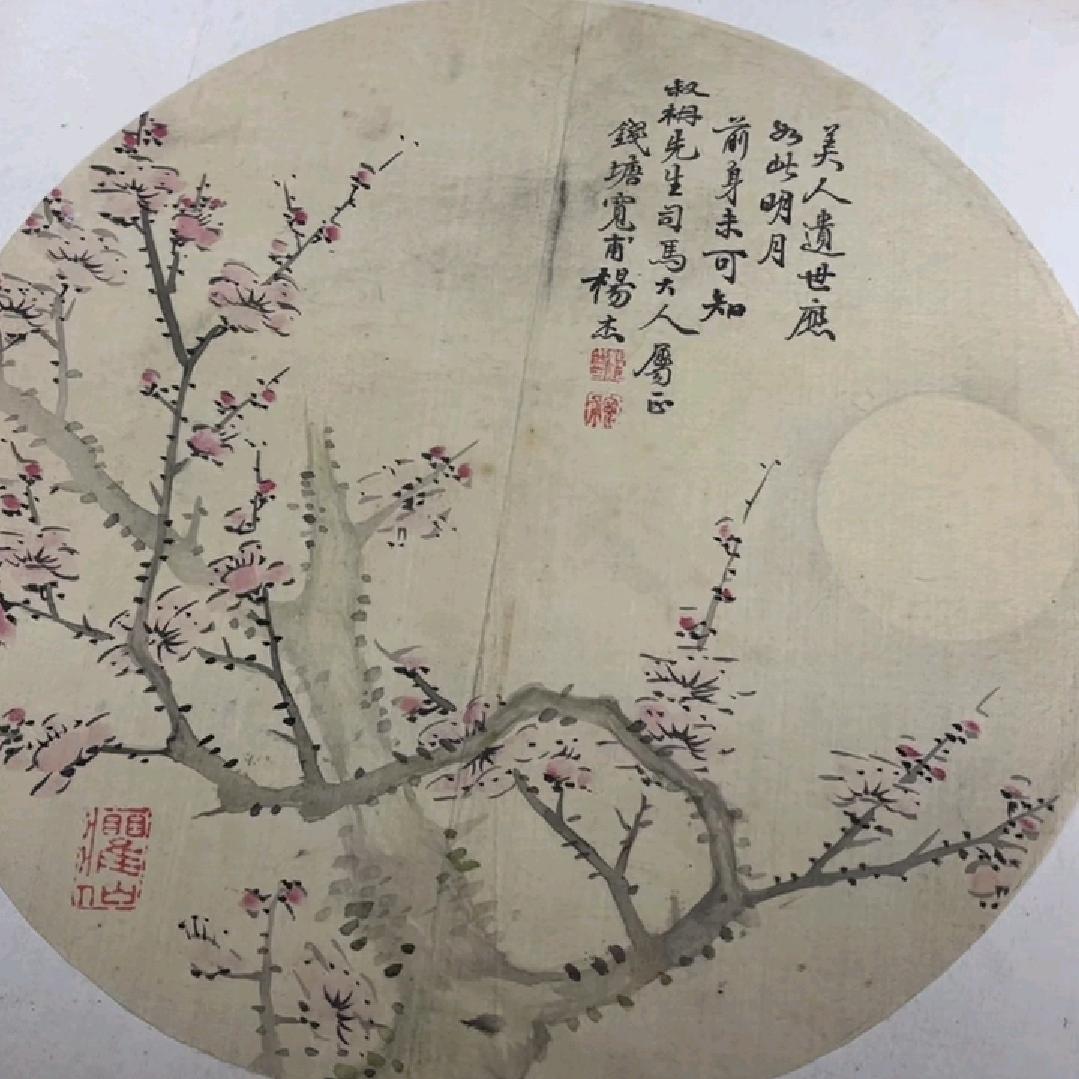 美人遺世應
如此明月
前身未可知
叔枏先生司馬大人屬正
錢塘寬甫楊杰